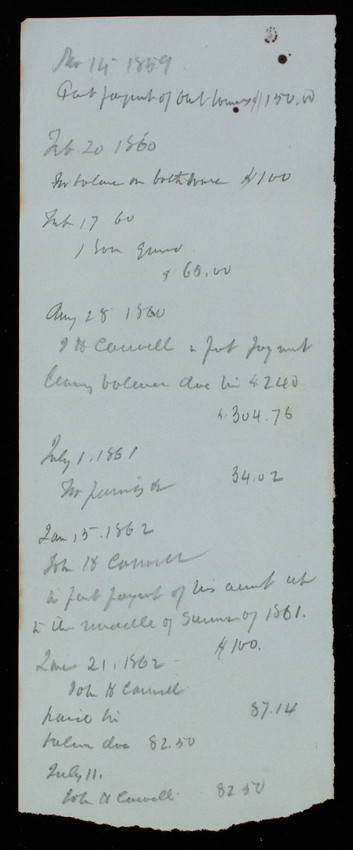 Nov 15 1859
Part payment of out houses $150.00
Feb 20 1860
For balance on bath house $100
Feb 17 60
1 Iron
$65.00
Aug 28 1860
J H Carwell in part payment
leaving balance due him $240
$304.76
July 1. 1861
34.02
Jan 15. 1862
John H Carwell
in part payment of his acount up
to the middle of Summer of 1861.
$100.
June 21. 1862
John H Carwell
paid him 87.14
balance due 82.50
July 11.
John H Carwell 82.50